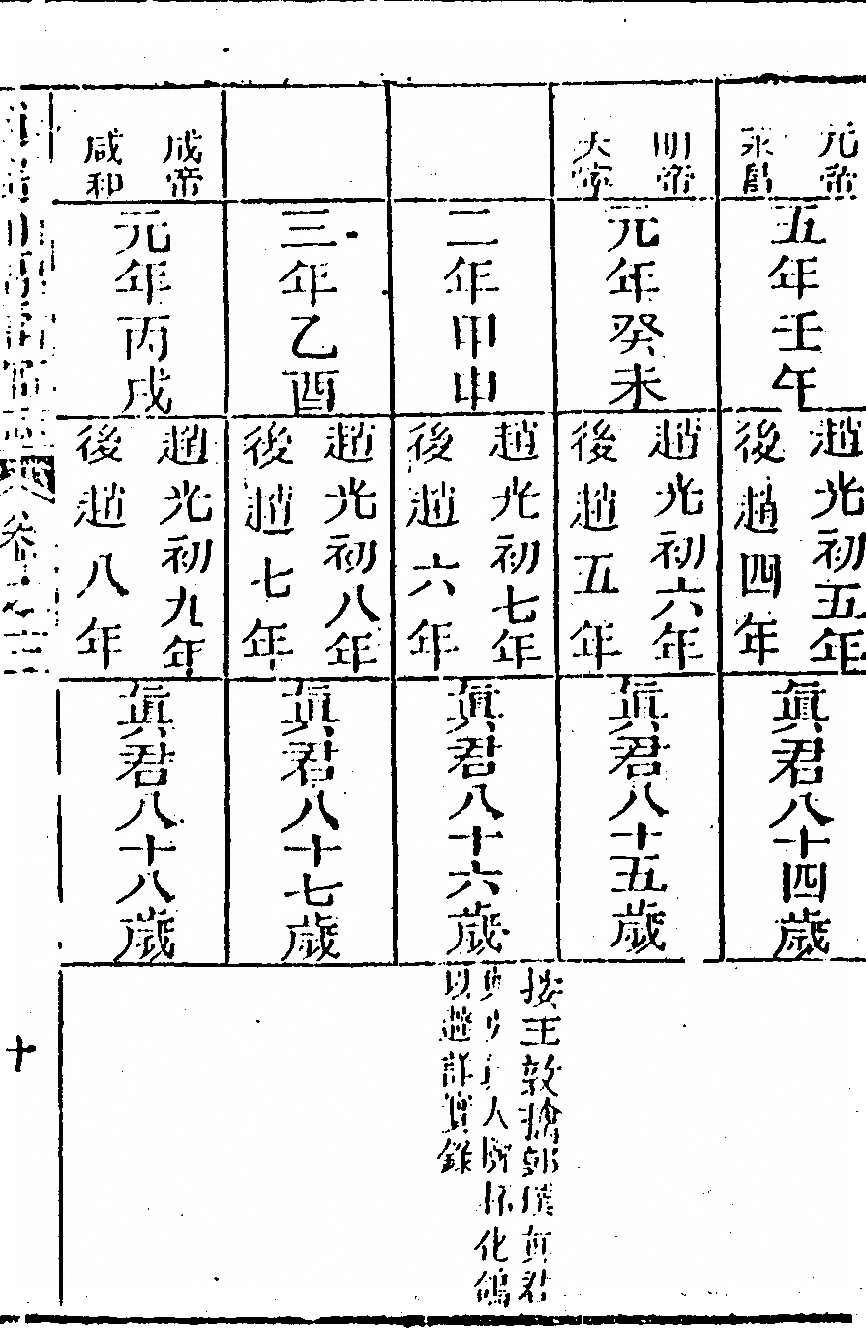 元帝
永昌
五年壬午
趙光初五年
後趙四年
眞君八十四歲
明帝
太寧
元年癸未
趙光初六年
後趙五年
眞君八十五歲
二年甲申
趙光初七年
後趙六年
眞君八十六歲
按王敦擒郭璞眞君
人 杯化鴿
以 詳實錄
三年乙酉
趙光初八年
後趙七年
眞君八十七歲
成帝
咸和
元年丙戌
趙光初九年
後趙八年
眞君八十八歲
卷之二
十